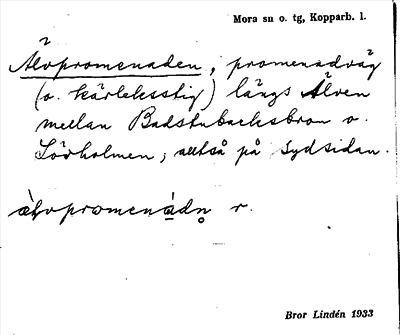 Mora sn o. tg, Kopparb. l.
Älvpromenaden, promenadväg
(o. kärleksstig) längs Älven
mellan Badstubacksbron o.
Lövholmen; alltså på sydsidan.
älvpromenádn r.
Bror Lindén 1933